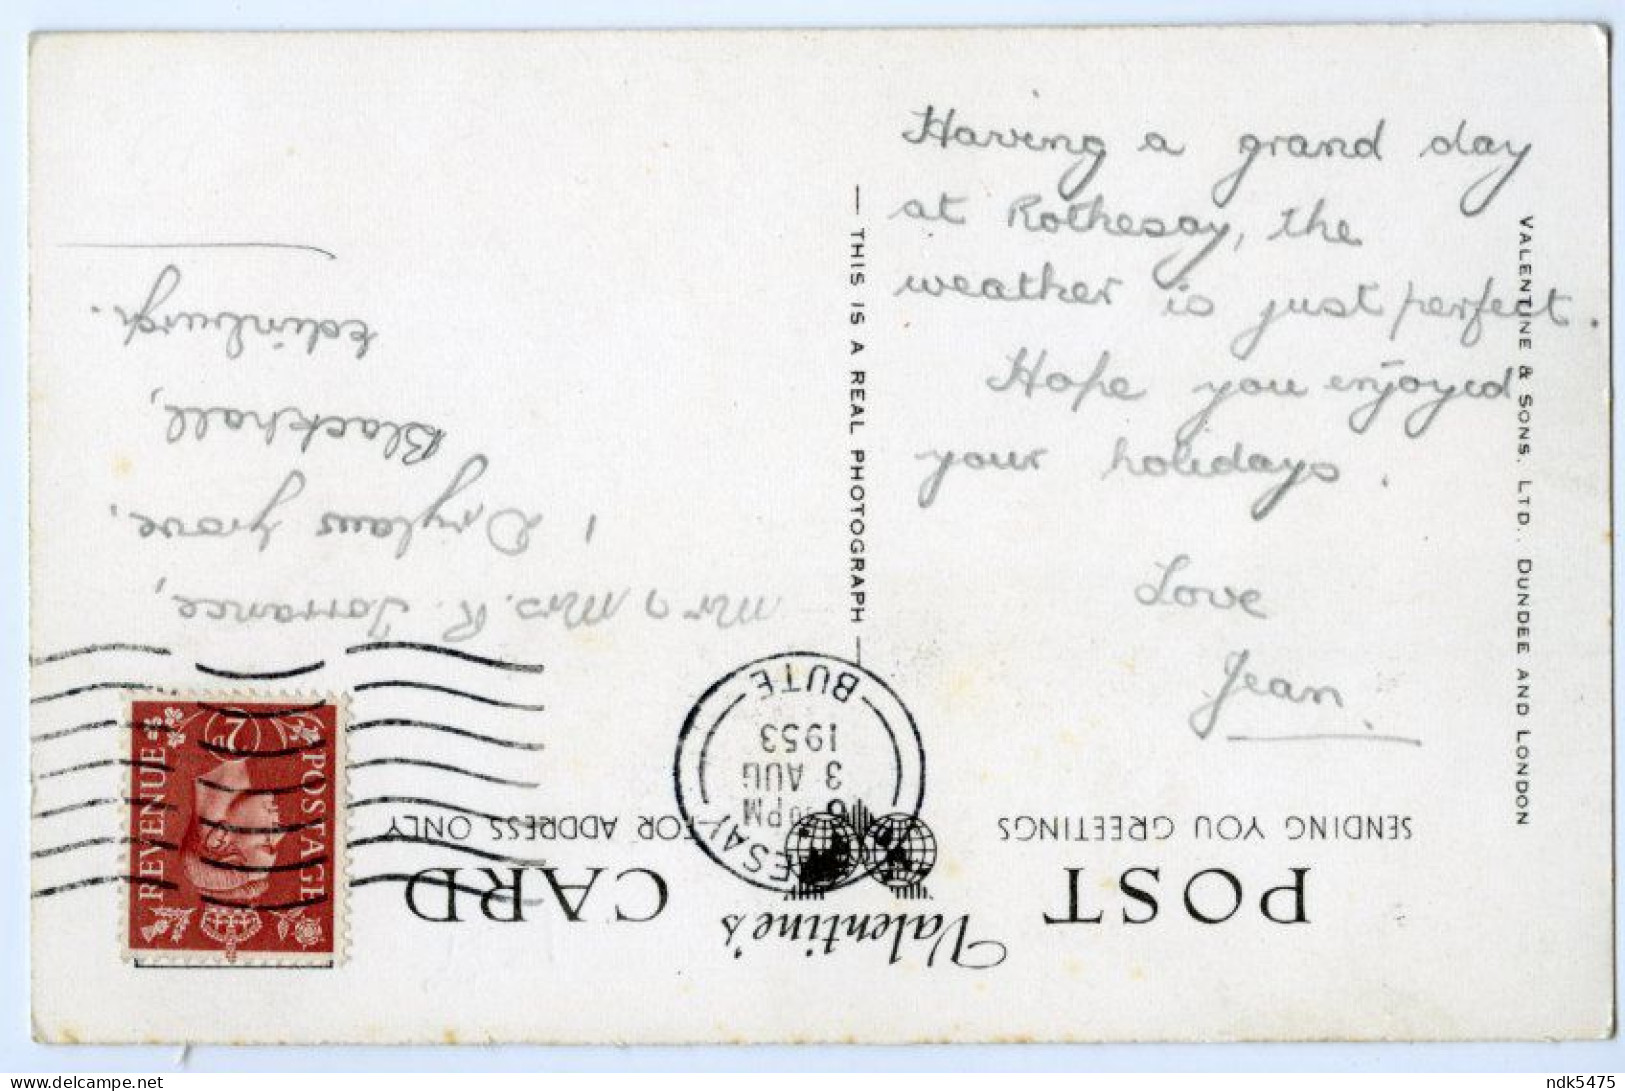 Having a grand day
at Rothesay, the
weather is just perfect.
Hope you enjoyed
your holidays.
Love
Jean.
VALENTINE & SONS, LTD., DUNDEE AND LONDON
— THIS IS A REAL PHOTOGRAPH —
POST CARD
Valentine's
SENDING YOU GREETINGS
FOR ADDRESS ONLY
ESAY
PM
3 AUG
1953
BUTE
POSTAGE
REVENUE
2D
Mr & Mrs. R. Torrance,
1 Drylaw Grove,
Blackhall,
Edinburgh.
ndk5475